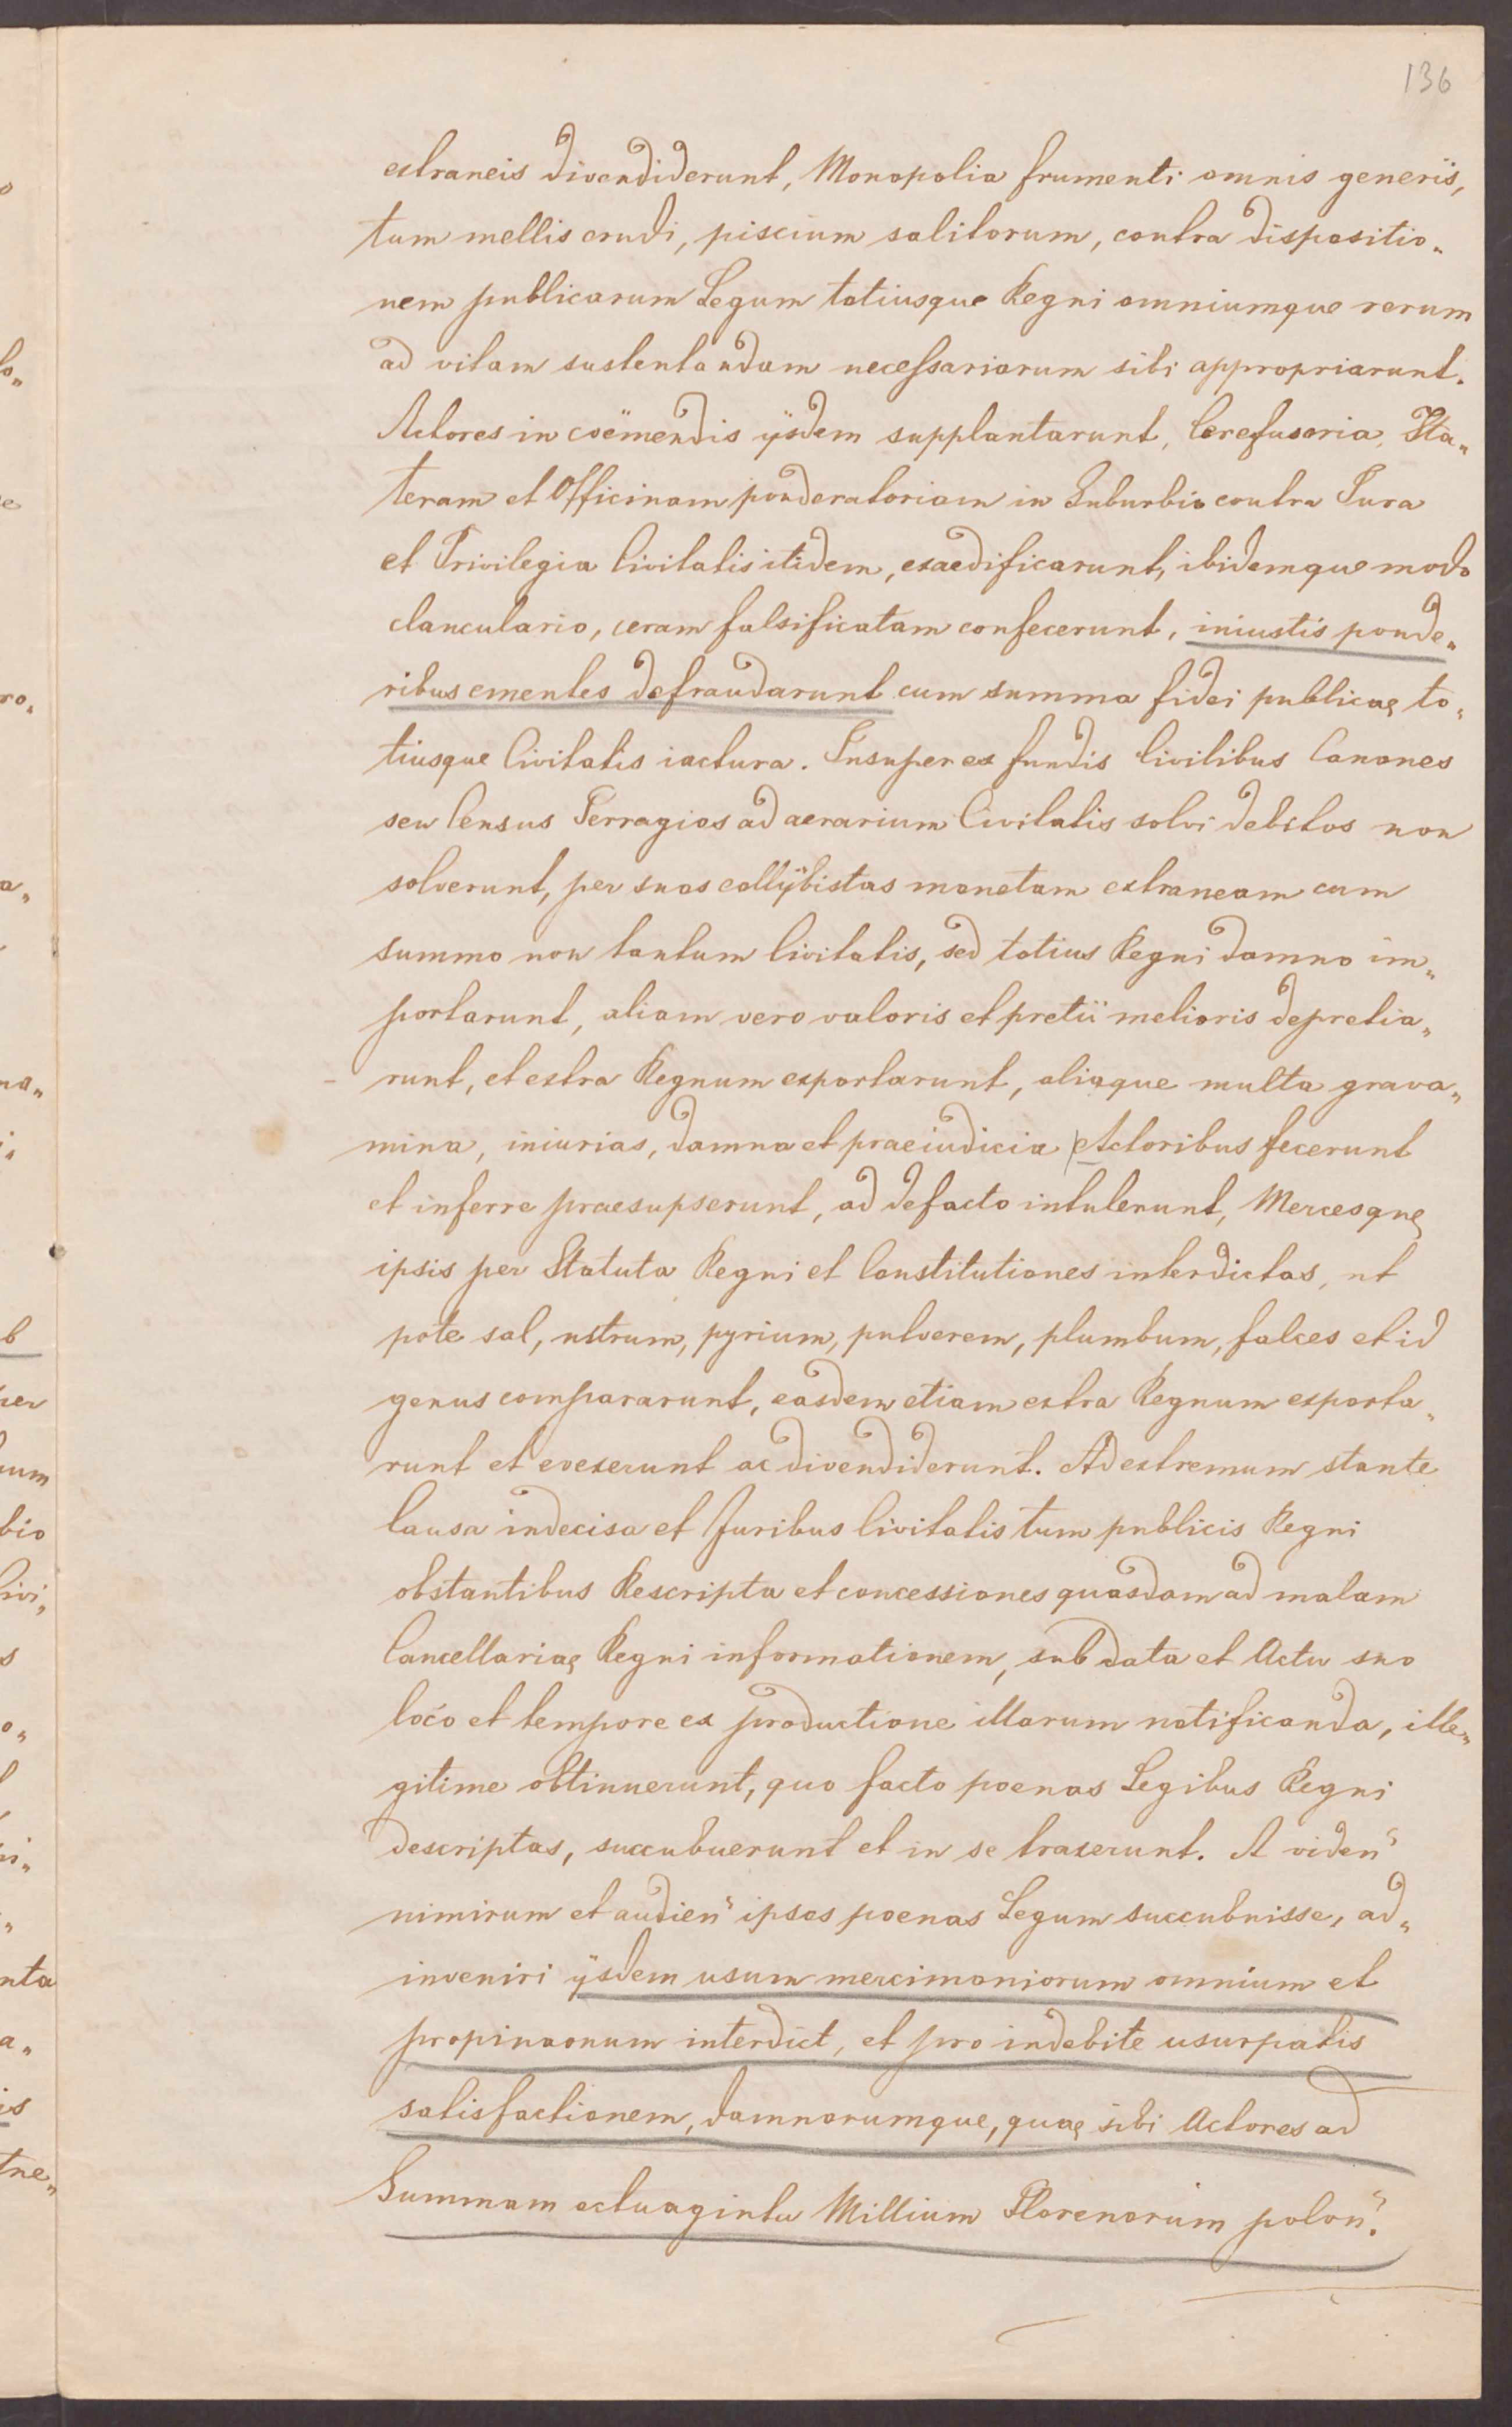 136
extraneis divendiderunt, Monopolia frumenti omnis generis,
tum mellis crudi, piscium salitorum, contra dispositio„
nem publicarum Legum totiusque Regni omniumque rerum
ad vitam sustentandam necessariarum sibi appropriarunt.
Actores in coëmendis ijsdem supplantarunt, Cerefusoria, Sta„
teram et Officinam ponderatoriam in Suburbio contra Jura
et Privilegia Civitatis itidem, exaedificarunt, ibidemque modo
clanculario, ceram falsificatam confecerunt, iniustis ponde„
ribus ementes defraudarunt cum summa fidei publicae to„
tiusque Civitatis iactura. Insuper ex fundis Civilibus Canones
seu Census Terragios ad aerarium Civitatis solvi debitos non
solverunt, per suos collybistas monetam extraneam cum
summo non tantum Civitatis, sed totius Regni damno im„
portarunt, aliam vero valoris et pretii melioris depretia„
runt, et extra Regnum exportarunt, aliaque multa grava„
mina, iniurias, damna et praeiudicia Actoribus fecerunt
et inferre praesupserunt, ad defacto intulerunt, Mercesque
ipsis per Statuta Regni et Constitutiones interdictas, ut
pote sal, nitrum, pyrium, pulverem, plumbum, falces et id
genus compararunt, easdem etiam extra Regnum exporta„
runt et evexerunt ac divendiderunt. Ad extremum stante
Causa indecisa et Juribus Civitatis tum publicis Regni
obstantibus Rescripta et concessiones quasdam ad malam
Cancellariae Regni informationem, sub data et Actu suo
loco et tempore ex productione illarum notificanda, ille„
gitime obtinuerunt, quo facto poenas Legibus Regni
descriptas, succubuerunt et in se traxerunt. A viden
nimirum et audien ipsos poenas Legum succubuisse, ad„
inveniri ijsdem usum mercimoniorum omnium et
propinaonum interdict, et pro indebite usurpatis
satisfactionem, damnorumque, quae sibi Actores ad
Summam octuaginta Millium Florenorum polon.